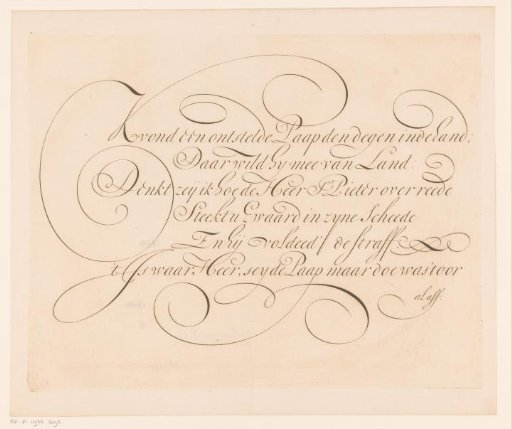 K vond een ontstelde Paap den degen in de hand;
Daar wild hy mee van Land.
Denkt zey ik hoe de Heer St. Pieter overreede
Steekt u Zwaard in zyne Scheede
En hij voldeed / de straff
't Is waar, Heer, seyde Paap maar doe was t oor
al aff.